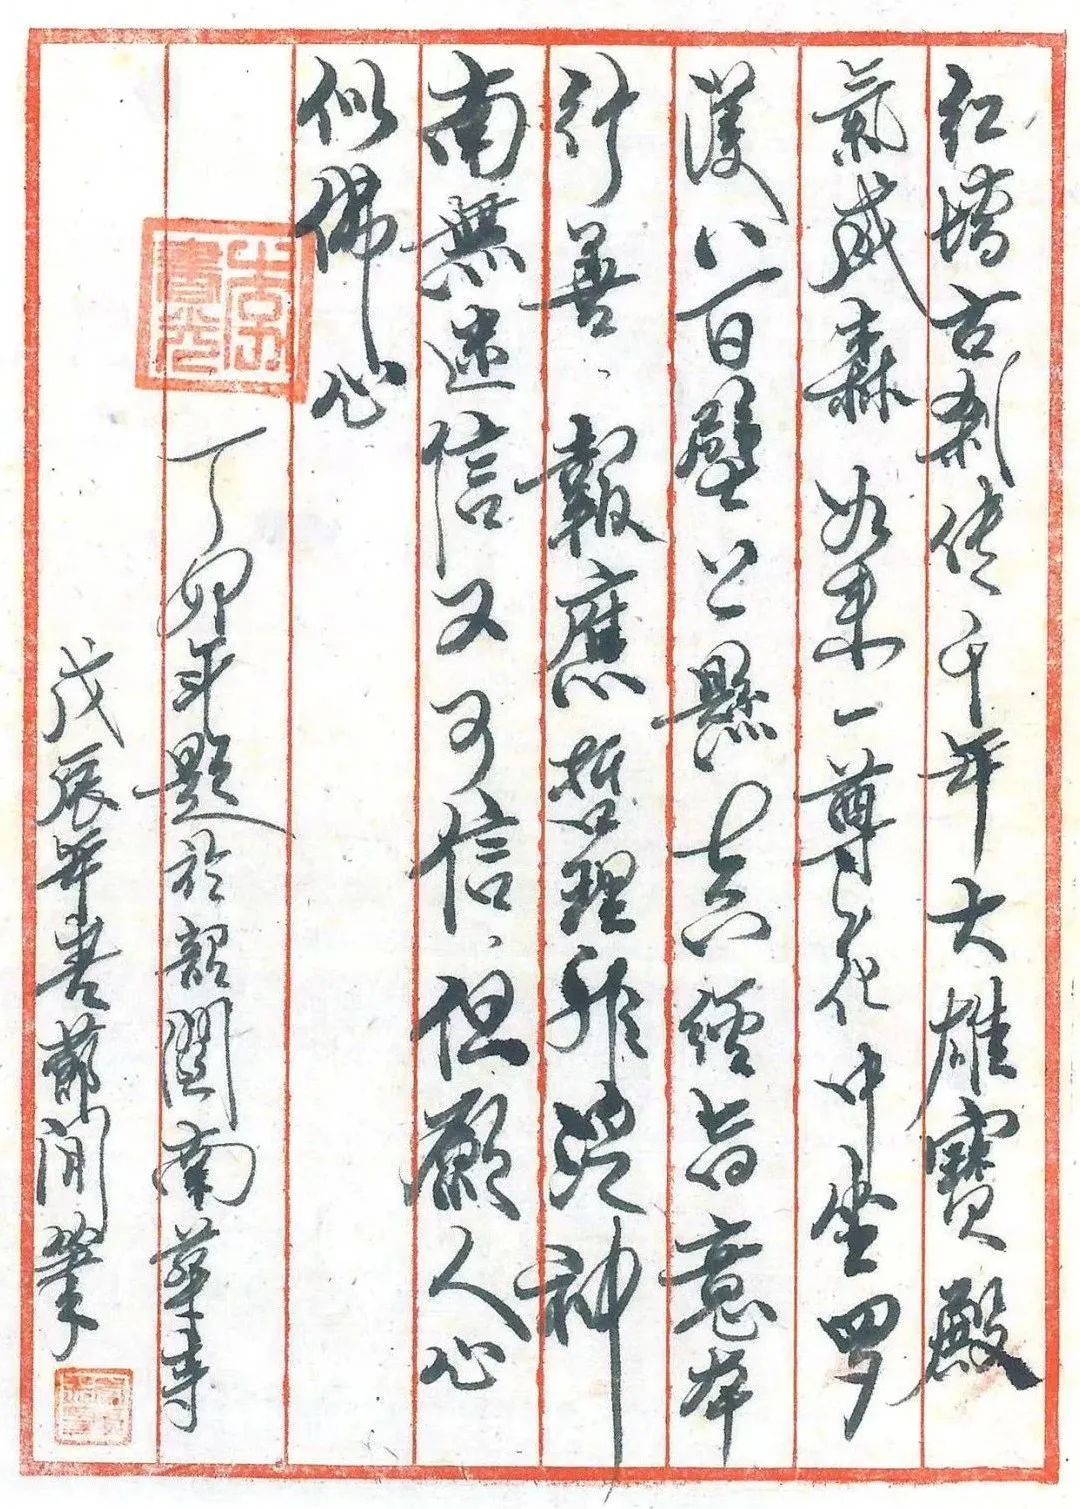 红墙古刹传千年大雄寳殿
氣威森如来一尊花中坐罗
漢八百壁上懸真經旨意本
行善報應哲理非渺神
南無迷信又可信但願人心
似佛心
丁卯年题於韶関南華寺
戊辰年書蔡闲筆